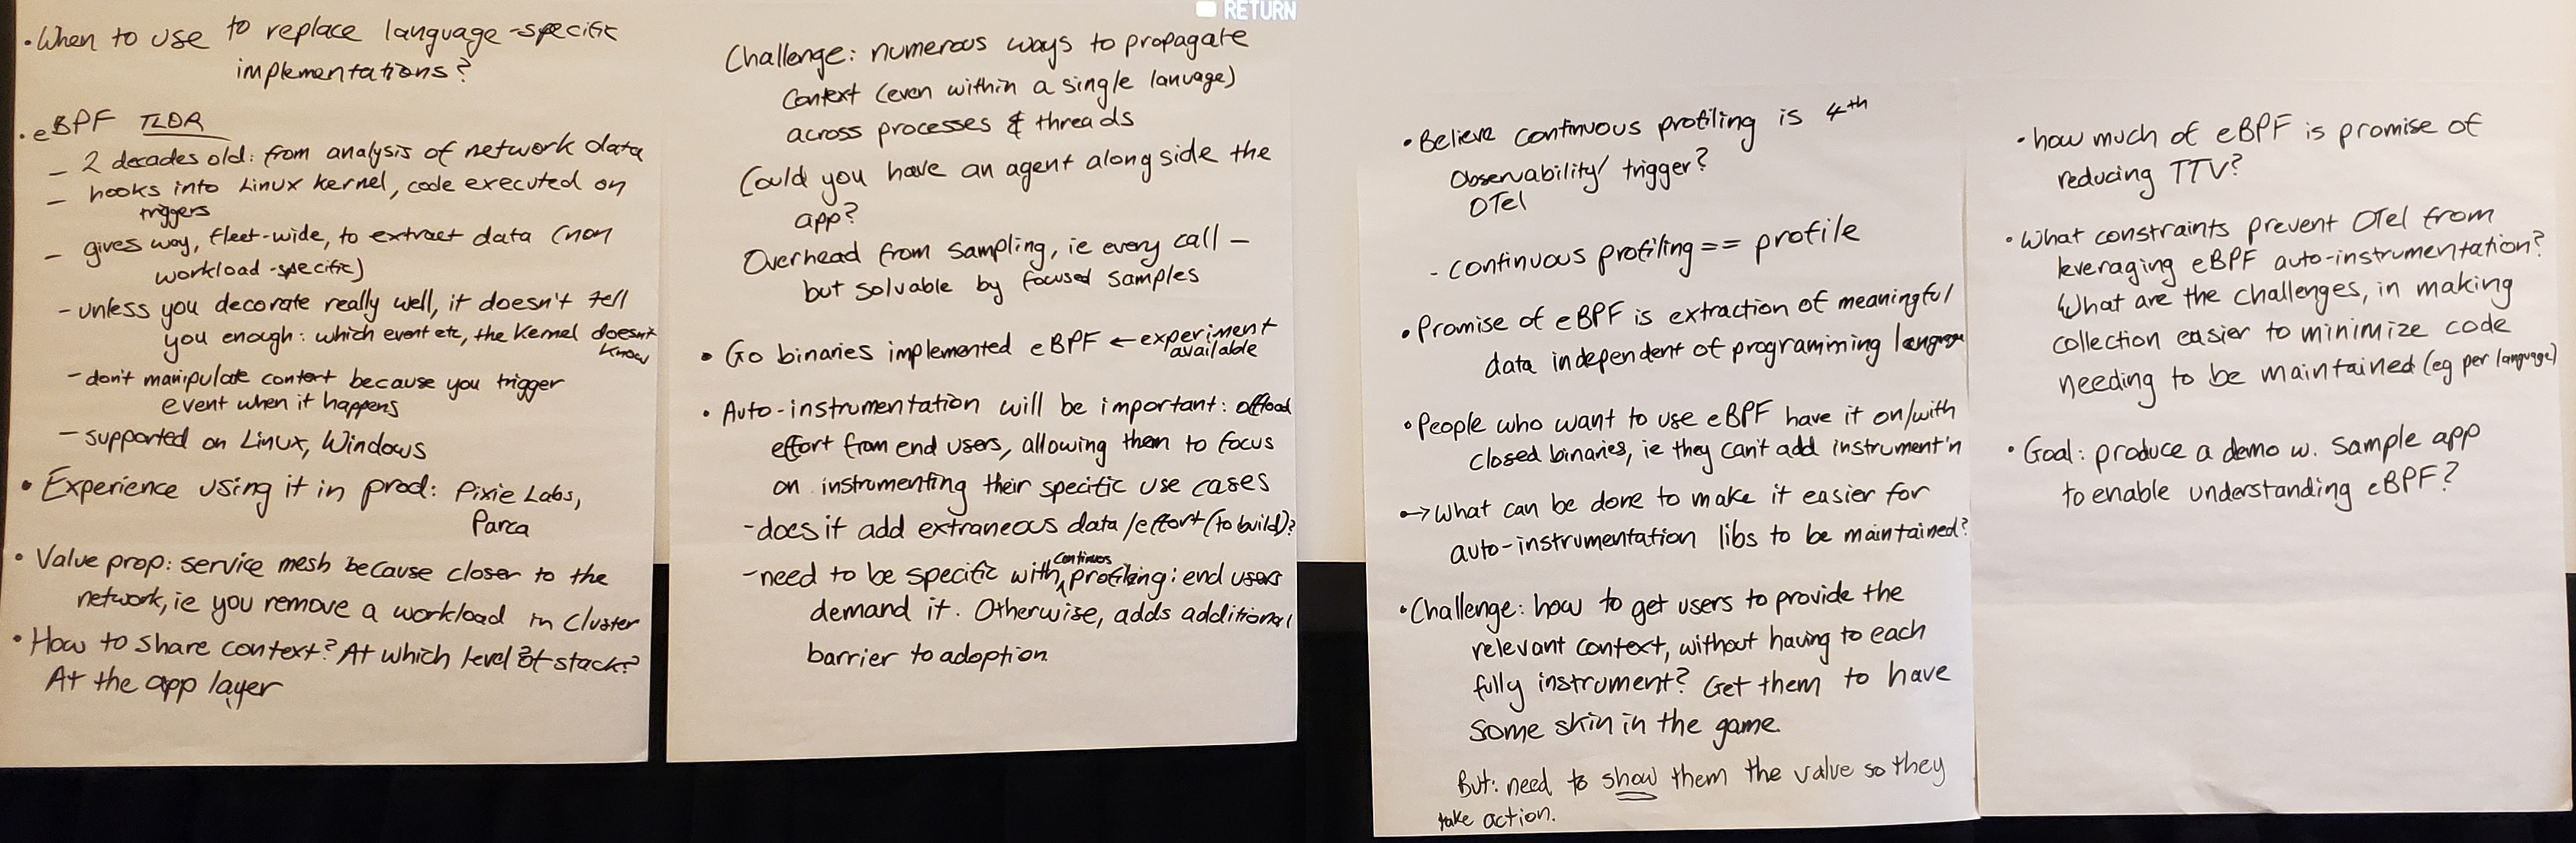 • When to use to replace language-specific
implementations?
• eBPF TLDR
– 2 decades old: from analysis of network data
– hooks into Linux kernel, code executed on
triggers
– gives way, fleet-wide, to extract data (non
workload-specific)
– unless you decorate really well, it doesn't tell
you enough: which event etc, the kernel doesn't
know
– don't manipulate context because you trigger
event when it happens
– supported on Linux, Windows
• Experience using it in prod: Pixie Labs,
Parca
• Value prop: service mesh because closer to the
network, ie you remove a workload in cluster
• How to share context? At which level of stack?
At the app layer
RETURN
Challenge: numerous ways to propagate
context (even within a single lanuage)
across processes & threads
Could you have an agent alongside the
app?
Overhead from sampling, ie every call –
but solvable by focused samples
• Go binaries implemented eBPF ← experiment
available
• Auto-instrumentation will be important: offload
effort from end users, allowing them to focus
on instrumenting their specific use cases
- does it add extraneous data/effort (to build)?
- need to be specific with continuos profiling: end users
demand it. Otherwise, adds additional
barrier to adoption
• Believe continuous profiling is 4th
Observability/ trigger?
OTel
- continuous profiling == profile
• Promise of eBPF is extraction of meaningful
data independent of programming language
• People who want to use eBPF have it on/with
closed binaries, ie they can't add instrument'n
•→ What can be done to make it easier for
auto-instrumentation libs to be maintained?
• Challenge: how to get users to provide the
relevant context, without having to each
fully instrument? Get them to have
some skin in the game.
But: need to show them the value so they
take action.
• how much of eBPF is promise of
reducing TTV?
• What constraints prevent OTel from
leveraging eBPF auto-instrumentation?
What are the challenges, in making
collection easier to minimize code
needing to be maintained (eg per language)
• Goal: produce a demo w. sample app
to enable understanding eBPF?